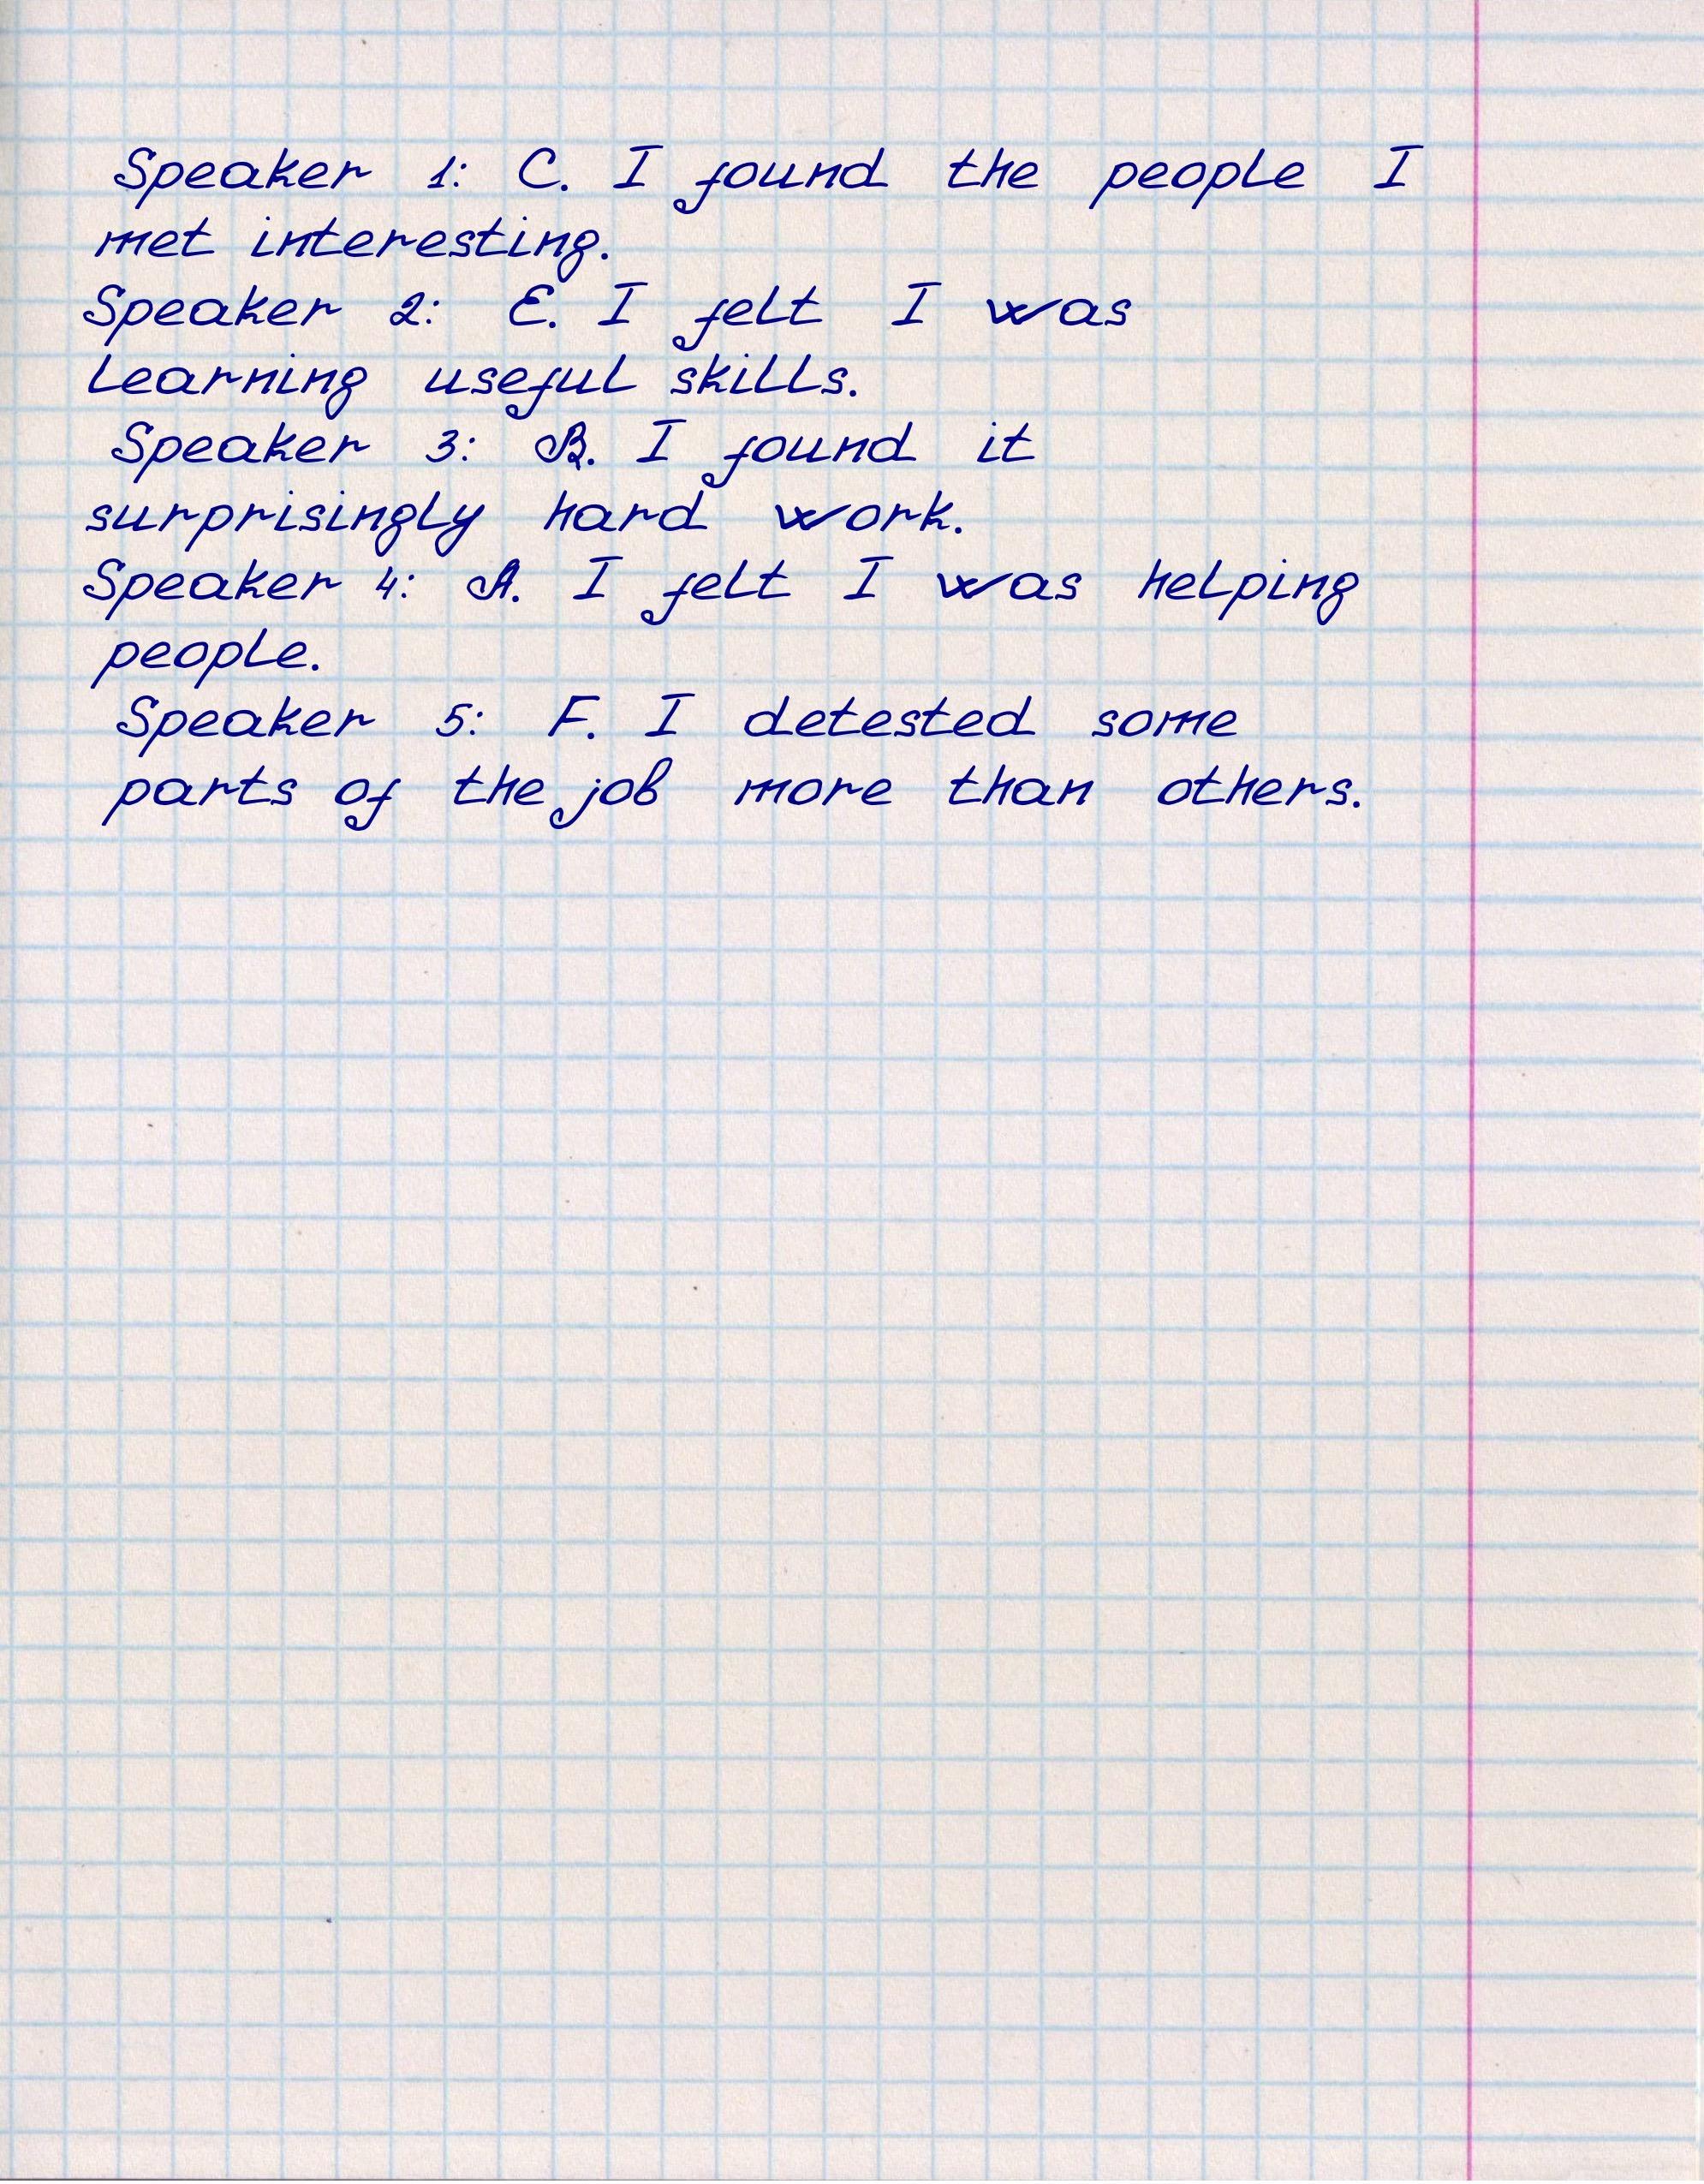 Speaker 1: C. I found the people I
met interesting.
Speaker 2: E. I felt I was
learning useful skills.
Speaker 3: B. I found it
surprisingly hard work.
Speaker 4: A. I felt I was helping
people.
Speaker 5: F. I detested some
parts of the job more than others.